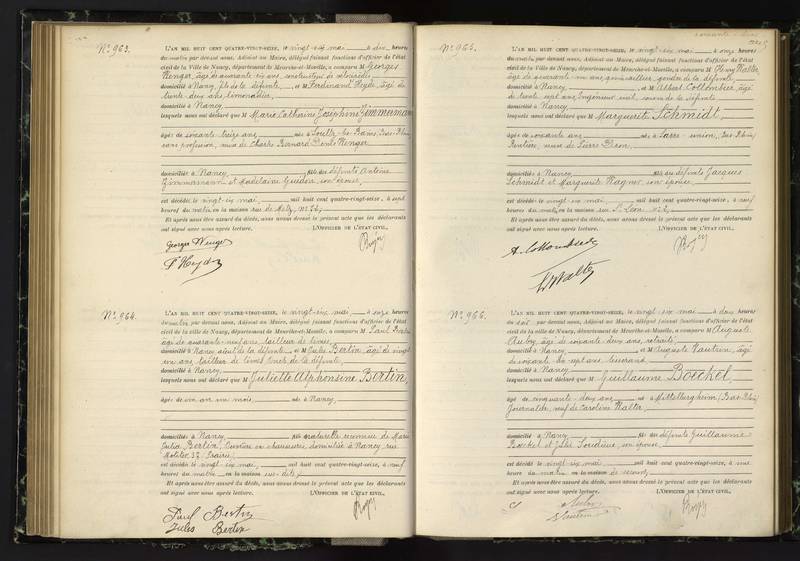 N° 963.
L'AN MIL HUIT CENT QUATRE-VINGT-SEIZE, le vingt-six mai à dix heures
du matin par devant nous, Adjoint au Maire, délégué faisant fonctions d'officier de l'état
civil de la Ville de Nancy, département de Meurthe-et-Moselle, a comparu M Georges
Wenger, âgé de quarante six ans, constructeur de
domicilié à Nancy, fils de la défunte, et M Ferdinand Heydt, âgé de
trente deux ans, limonadier,
domicilié à Nancy
lesquels nous ont déclaré que M Marie Catherine Joséphine Zimmermann
âgée de soixante treize ans, née à Soultz-les-Bains, Bas-Rhin
sans profession, veuve de Charles Bernard Wenger
domiciliée à Nancy, fille des défunts Antoine
Zimmermann et Madelaine Guédon, son épouse,
est décédée le vingt-six mai, mil huit cent quatre-vingt-seize, à sept
heures du matin en la maison rue de Metz, N°
Et après nous être assuré du décès, nous avons dressé le présent acte que les déclarants
ont signé avec nous après lecture. L'OFFICIER DE L'ÉTAT CIVIL,
Georges Wenger
F Heydt
N° 964.
L'AN MIL HUIT CENT QUATRE-VINGT-SEIZE, le vingt-six mai, à onze heures
du matin, par devant nous, Adjoint au Maire, délégué faisant fonctions d'officier de l'état
civil de la ville de Nancy, département de Meurthe-et-Moselle, a comparu M Paul Bertin
âgé de quarante neuf ans, tailleur de limes,
domicilié à Nancy aïeul de la défunte et M Jules Bertin, âgé de vingt
un ans, tailleur de limes oncle de la défunte,
domicilié à Nancy
lesquels nous ont déclaré que M Juliette Alphonsine Bertin,
âgée de un an un mois, née à Nancy,
domiciliée à Nancy fille naturelle reconnue de Marie
Julia Bertin, ouvrière en chaussures, domiciliée à Nancy, rue
Molitor, 37,
est décédée le vingt-six mai, mil huit cent quatre-vingt-seize, à neuf
heures du matin en la maison sus-dite,
Et après nous être assuré du décès, nous avons dressé le présent acte que les déclarants
ont signé avec nous après lecture. L'OFFICIER DE L'ÉTAT CIVIL,
Paul Bertin
Jules Bertin
N° 965.
L'AN MIL HUIT CENT QUATRE-VINGT-SEIZE, le vingt-six mai à onze heures
du matin, par devant nous, Adjoint au Maire, délégué faisant fonctions d'officier de l'état
civil de la Ville de Nancy, département de Meurthe-et-Moselle, a comparu M Henry Walter,
âgé de quarante un ans, gendre de la défunte
domicilié à Nancy, et M Albert Collombier, âgé
de trente sept ans, Ingénieur civil, de la défunte
domicilié à Nancy
lesquels nous ont déclaré que M Marguerite Schmidt
âgée de soixante ans née à Sarre-union, Bas-Rhin
Rentière, veuve de Pierre
domiciliée à Nancy fille des défunts Jacques
Schmidt et Marguerite Wagner, son épouse,
est décédée le vingt-six mai, mil huit cent quatre-vingt-seize, à neuf
heures du matin en la maison rue St Léon,
Et après nous être assuré du décès, nous avons dressé le présent acte que les déclarants
ont signé avec nous après lecture. L'OFFICIER DE L'ÉTAT CIVIL,
A. Collombier
H Walter
N° 966.
L'AN MIL HUIT CENT QUATRE-VINGT-SEIZE, le vingt six mai, à deux heures
du soir par devant nous, Adjoint au Maire, délégué faisant fonctions d'officier de l'état
civil de la ville de Nancy, département de Meurthe-et-Moselle, a comparu M Auguste
Aubry, âgé de soixante deux ans, retraité,
domicilié à Nancy et M Auguste Vautrin, âgé
de soixante sept ans, tisserand
domicilié à Nancy
lesquels nous ont déclaré que M Guillaume Boeckel
âgé de cinquante-deux ans né à Mittelbergheim, (Bas-Rhin)
Journalier, veuf de Caroline Walter
domicilié à Nancy fils des défunts Guillaume
Boeckel et son épouse,
est décédé le vingt-six mai mil huit cent quatre-vingt-seize, à une
heure du matin en la maison de secours,
Et après nous être assuré du décès, nous avons dressé le présent acte que les déclarants
ont signé avec nous après lecture. L'OFFICIER DE L'ÉTAT CIVIL,
Aubry
Vautrin